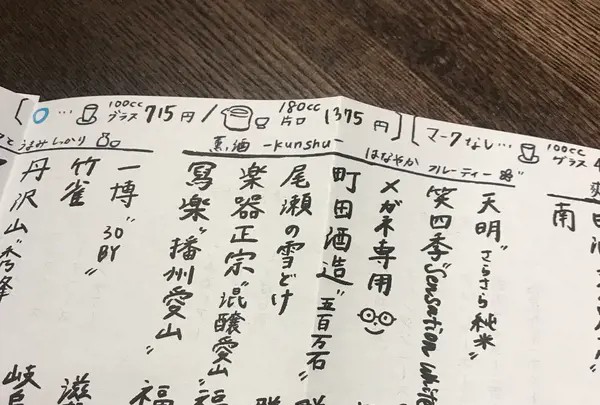 [ ○… 100cc グラス 715円 / 180cc 片口 1375円 ]
[ マークなし… 100cc グラス
うまみしっかり
薫酒 -kunshu- はなやか フルーティー
南
天明 "さらさら純米"
笑四季 "Sensation White
メガネ専用
町田酒造 "五百万石"
尾瀬の雪どけ
楽器正宗 "混醸愛山"
寫楽 "播州愛山"
一博 "30BY"
竹雀
丹沢山 "秀峰
福
滋
岐